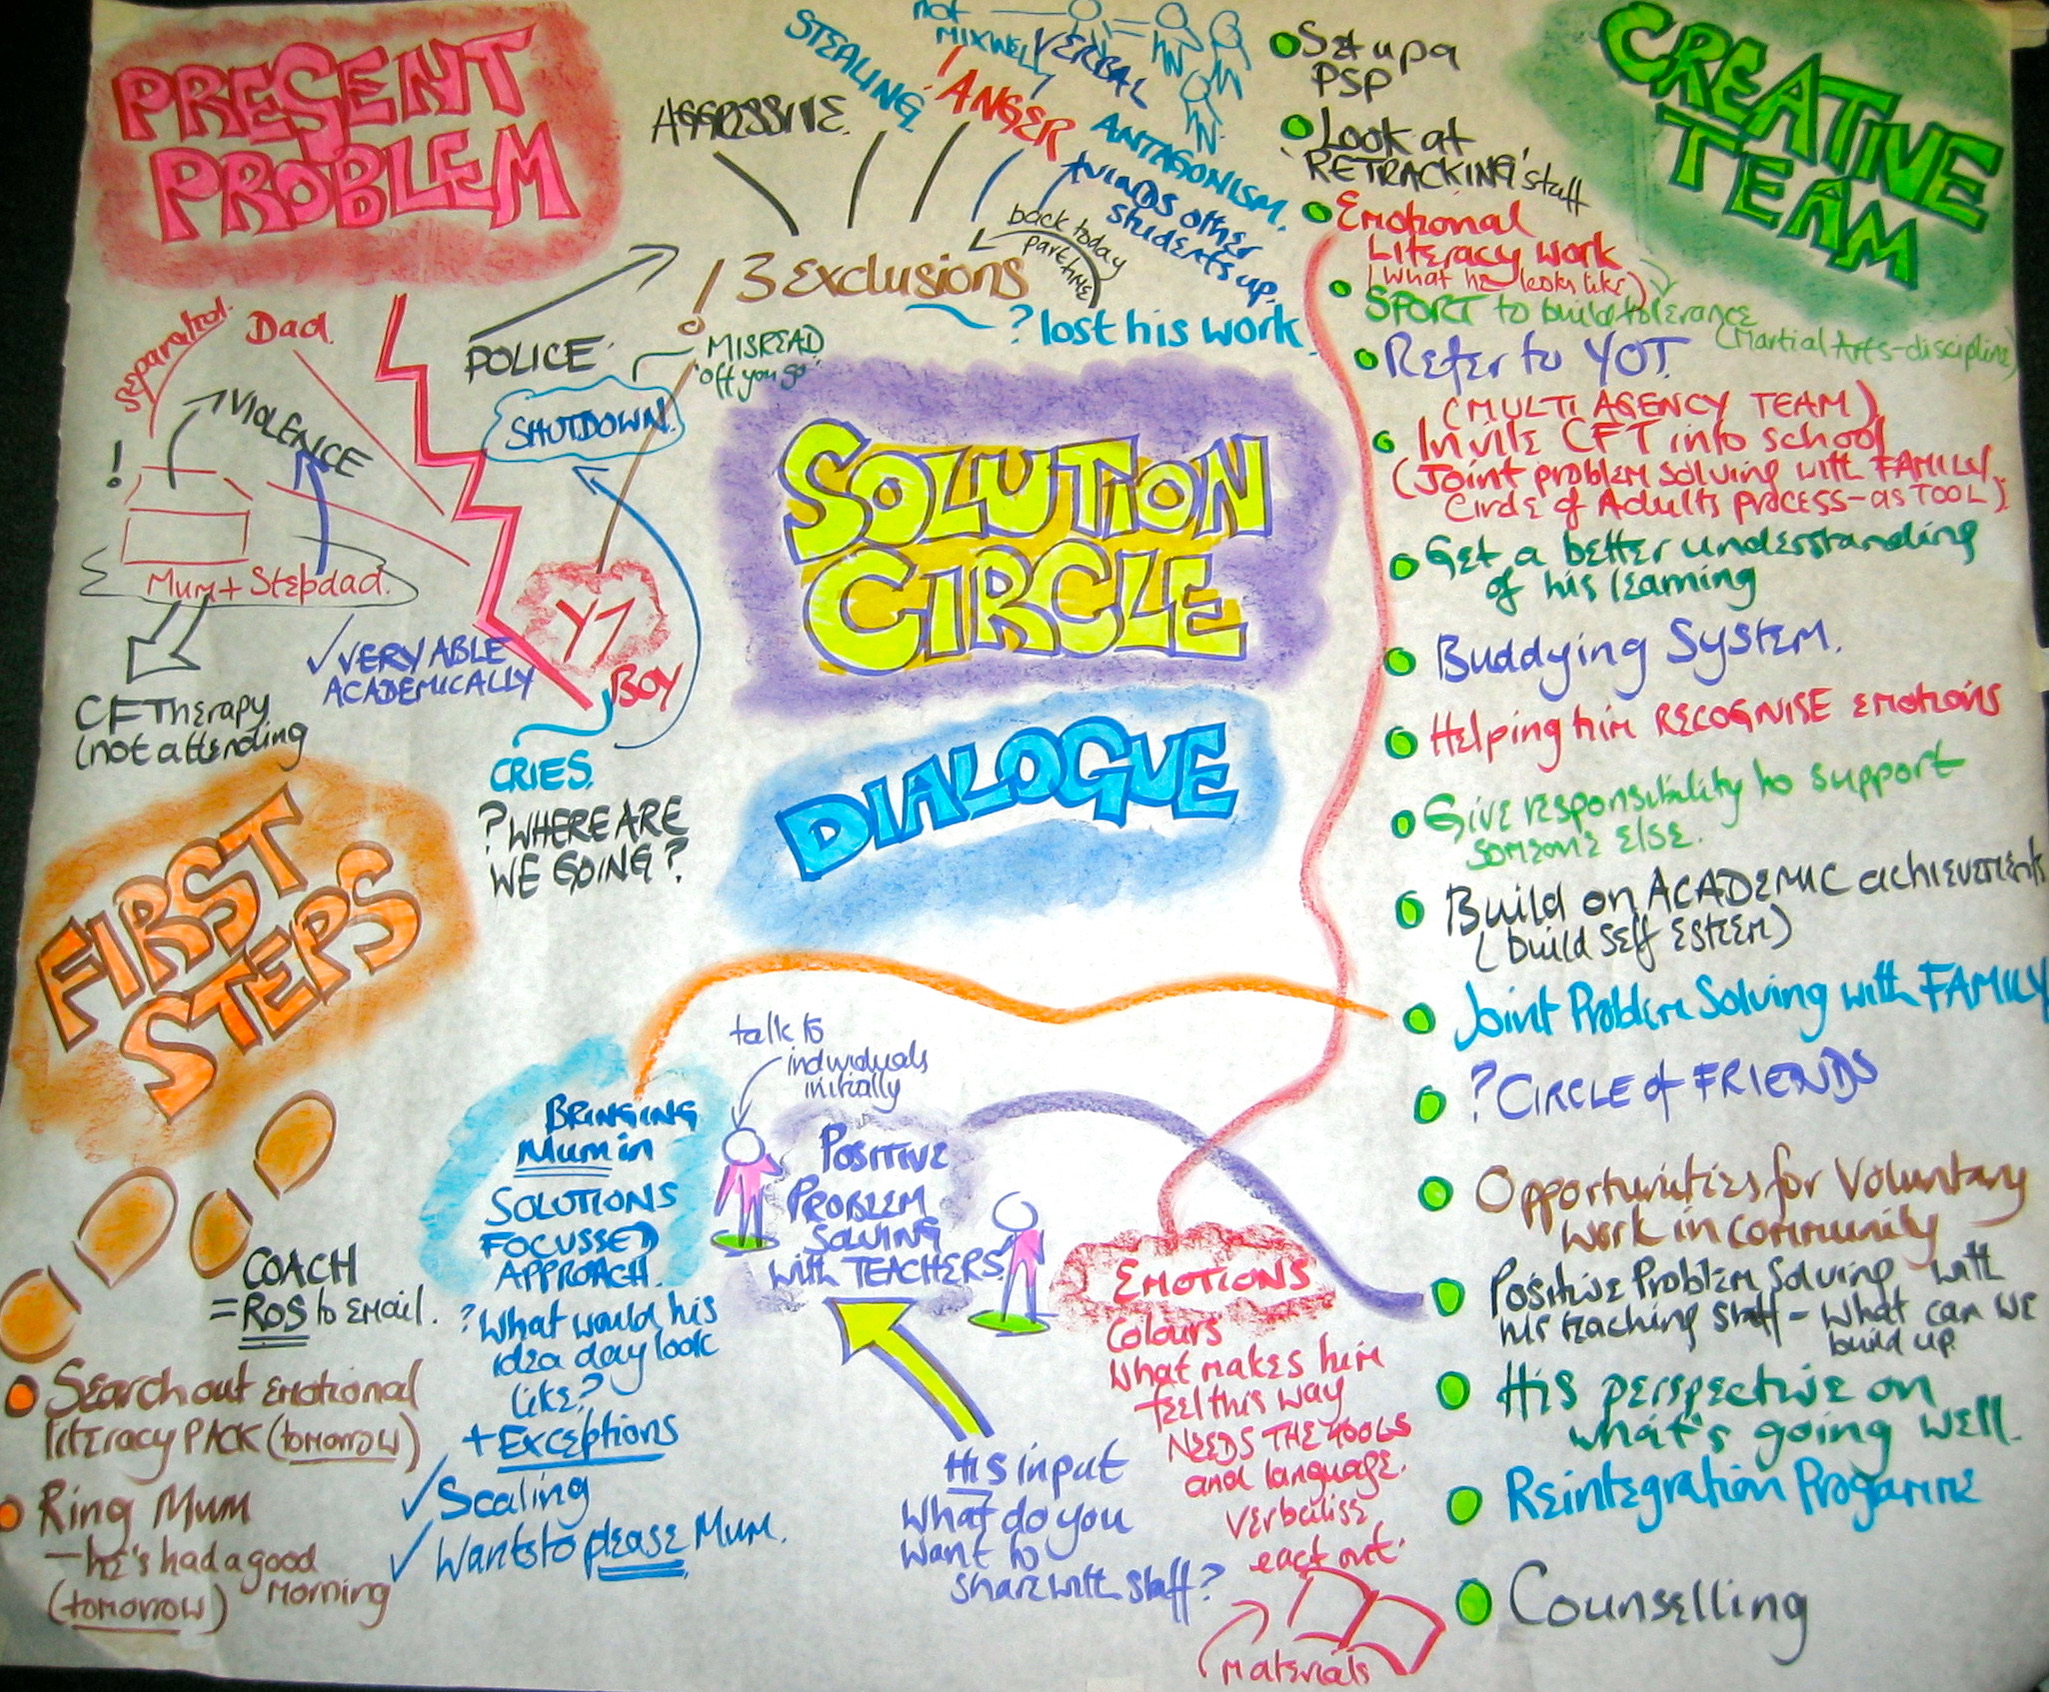 PRESENT
PROBLEM
Separated.
Dad
!
VIOLENCE
Mum + Stepdad.
CF Therapy
(not attending
✓ VERY ABLE
ACADEMICALLY
Y7
BOY
CRIES.
? WHERE ARE
WE GOING?
SHUTDOWN.
POLICE.
MISREAD
'off you go'
3 Exclusions
AGGRESSIVE.
STEALING.
not
MIX WELL
ANGER
VERBAL
ANTAGONISM.
WINDS other
students up.
back today
part time
? lost his work
SOLUTION
CIRCLE
DIALOGUE
CREATIVE
TEAM
Set up a
PSP
Look at
'RETRACKING' staff
Emotional
Literacy work
(What he looks like)
SPORT to build tolerance
(Martial Arts - discipline)
Refer to YOT.
(MULTI AGENCY TEAM)
Invite CFT into school
(Joint problem solving with FAMILY.
Circle of Adults process - as TOOL).
Get a better understanding
of his learning
Buddying System.
Helping him RECOGNISE emotions
Give responsibility to support
someone else.
Build on ACADEMIC achievements
(build self esteem)
Joint Problem Solving with FAMILY
? CIRCLE of FRIENDS
Opportunities for Voluntary
work in community
Positive Problem Solving with
his teaching staff - what can we
build up
His perspective on
what's going well.
Reintegration Progamme
Counselling
FIRST
STEPS
COACH
= ROS to email.
Search out emotional
literacy PACK (tomorrow)
Ring Mum
- he's had a good
morning
(tomorrow)
BRINGING
Mum in
SOLUTIONS
FOCUSSED
APPROACH.
? What would his
idea day look
like?
+ Exceptions
✓ Scaling
✓ Wants to please Mum.
talk to
individuals
initially
POSITIVE
PROBLEM
SOLVING
with TEACHERS.
His input
What do you
want to
share with staff?
EMOTIONS
Colours
What makes him
feel this way
NEEDS THE TOOLS
and language.
verbalise
eact out.
materials